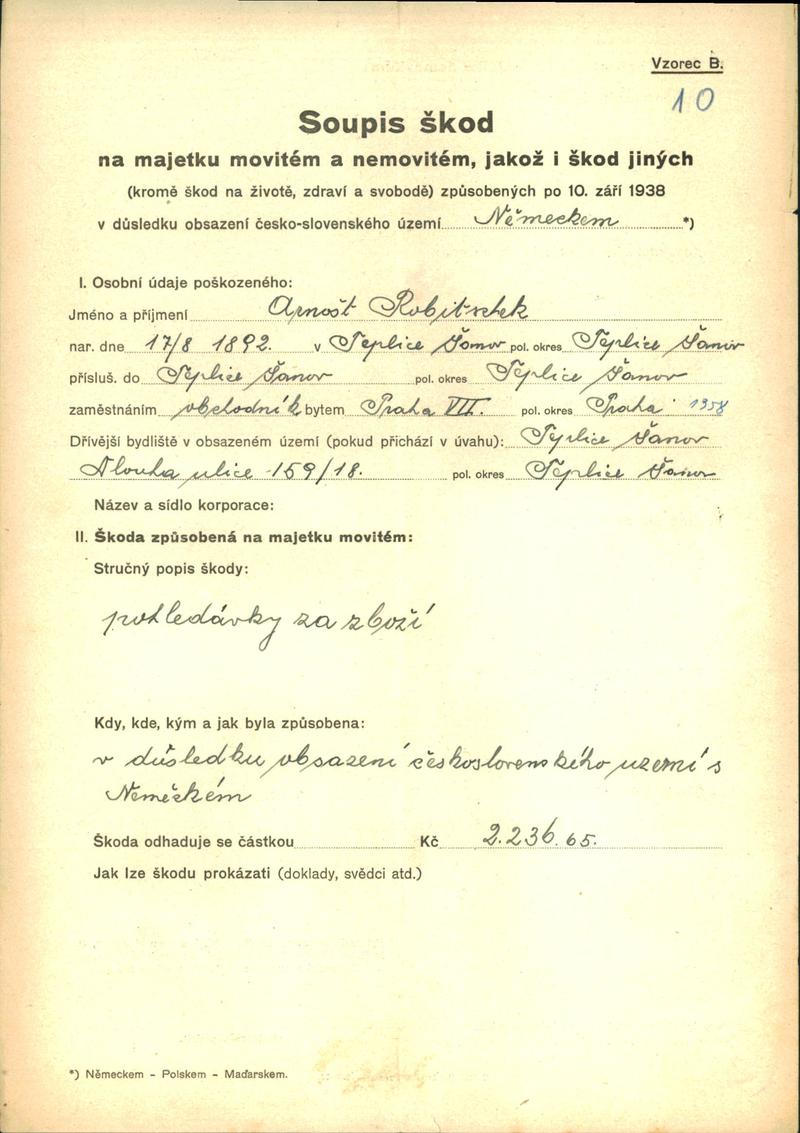 Vzorec B.
10
Soupis škod
na majetku movitém a nemovitém, jakož i škod jiných
(kromě škod na životě, zdraví a svobodě) způsobených po 10. září 1938
v důsledku obsazení česko-slovenského území Německem *)
I. Osobní údaje poškozeného:
Jméno a příjmení Arnošt Robitschek
nar. dne 17/8 1892. v Teplice Šanov pol. okres Teplice Šanov
přísluš. do Teplice Šanov pol. okres Teplice Šanov
zaměstnáním obchodník bytem Praha VII. pol. okres Praha 1958
Dřívější bydliště v obsazeném území (pokud přichází v úvahu): Teplice Šanov
Dlouha ulice 159/18. pol. okres Teplice Šanov
Název a sídlo korporace:
II. Škoda způsobená na majetku movitém:
Stručný popis škody:
pohledávky za zboží
Kdy, kde, kým a jak byla způsobena:
v důsledku obsazení československého uzemí s
Neměckém
Škoda odhaduje se částkou Kč 2.236.65.
Jak lze škodu prokázati (doklady, svědci atd.)
*) Německem - Polskem - Maďarskem.